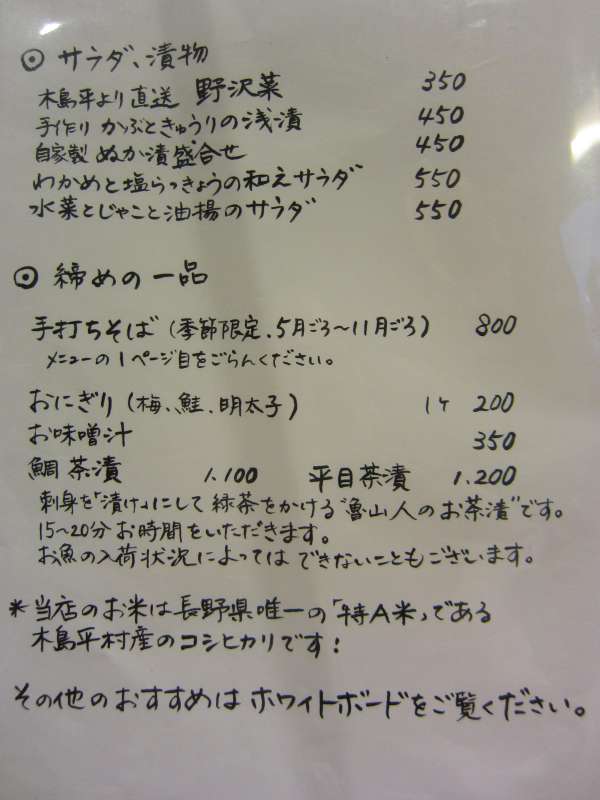 ⊙ サラダ、漬物
木島平より直送 野沢菜 350
手作り かぶときゅうりの浅漬 450
自家製 ぬか漬盛合せ 450
わかめと塩らっきょうの和えサラダ 550
水菜とじゃこと油揚のサラダ 550
⊙ 締めの一品
手打ちそば (季節限定、5月ごろ〜11月ごろ) 800
メニューの1ページ目をごらんください。
おにぎり (梅、鮭、明太子) 1ケ 200
お味噌汁 350
鯛茶漬 1.100 平目茶漬 1.200
刺身を「漬け」にして緑茶をかける“魯山人のお茶漬”です。
15〜20分お時間をいただきます。
お魚の入荷状況によってはできないこともございます。
*当店のお米は長野県唯一の「特A米」である
木島平村産のコシヒカリです!
その他のおすすめはホワイトボードをご覧ください。